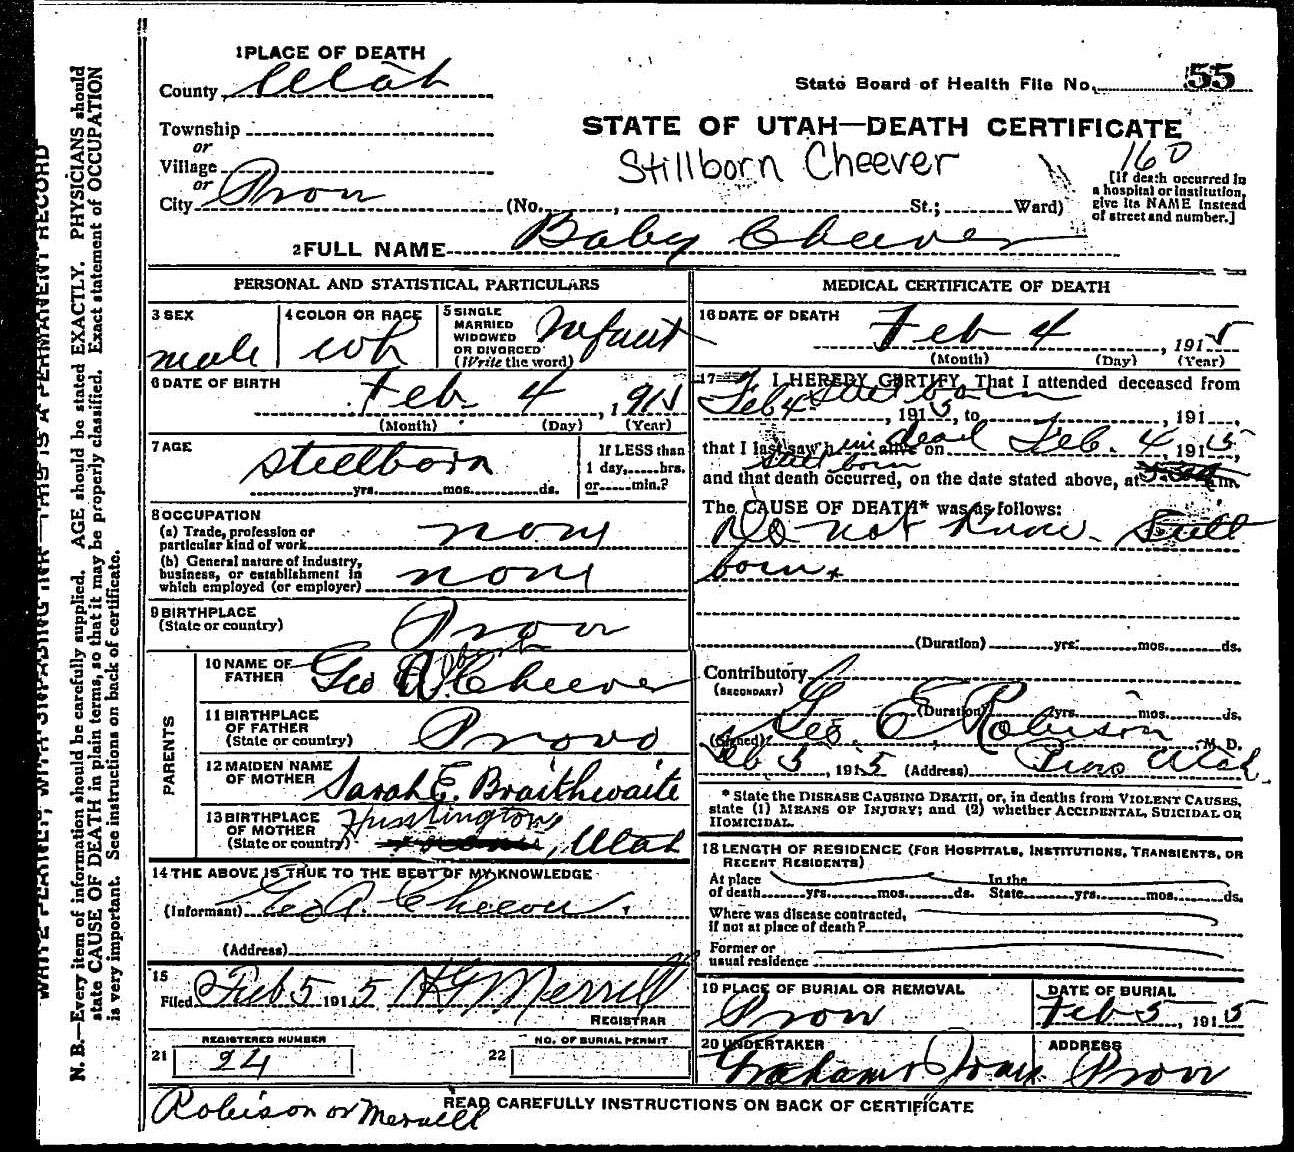 1 PLACE OF DEATH
County Utah
State Board of Health File No. 55
Township
or
Village
or
City Provo (No. , St.; Ward)
STATE OF UTAH—DEATH CERTIFICATE
Stillborn Cheever
160
[If death occurred in
a hospital or institution,
give its NAME instead
of street and number.]
2 FULL NAME Baby Cheever
PERSONAL AND STATISTICAL PARTICULARS
3 SEX
male
4 COLOR OR RACE
wh
5 SINGLE
MARRIED
WIDOWED
OR DIVORCED
(Write the word)
Infant
6 DATE OF BIRTH
Feb 4, 1915
(Month) (Day) (Year)
7 AGE
stillborn
yrs. mos. ds.
If LESS than
1 day, hrs.
or min.?
8 OCCUPATION
(a) Trade, profession or
particular kind of work none
(b) General nature of industry,
business, or establishment in
which employed (or employer) none
9 BIRTHPLACE
(State or country) Provo
PARENTS
10 NAME OF
FATHER Geo Albert Cheever
11 BIRTHPLACE
OF FATHER
(State or country) Provo
12 MAIDEN NAME
OF MOTHER Sarah E. Braithwaite
13 BIRTHPLACE
OF MOTHER
(State or country) Husstington, Utah
14 THE ABOVE IS TRUE TO THE BEST OF MY KNOWLEDGE
(Informant) Geo A. Cheever.
(Address)
15
Filed Feb 5 1915 Merrill
REGISTRAR
21 REGISTERED NUMBER
24
22 NO. OF BURIAL PERMIT
MEDICAL CERTIFICATE OF DEATH
16 DATE OF DEATH
Feb 4, 1915
(Month) (Day) (Year)
17 I HEREBY CERTIFY, That I attended deceased from
Stillborn
Feb 4, 1915, to , 191 ,
that I last saw him alive on dead Feb. 4, 1915,
still born
and that death occurred, on the date stated above, at m.
The CAUSE OF DEATH* was as follows:
Do not know. Still
born.
(Duration) yrs. mos. ds.
Contributory
(SECONDARY)
(Duration) yrs. mos. ds.
(Signed) Geo. E. Robison, M. D.
Feb 5, 1915 (Address) Provo Utah.
* State the DISEASE CAUSING DEATH, or, in deaths from VIOLENT CAUSES,
state (1) MEANS OF INJURY; and (2) whether ACCIDENTAL, SUICIDAL OR
HOMICIDAL.
18 LENGTH OF RESIDENCE (FOR HOSPITALS, INSTITUTIONS, TRANSIENTS, OR
RECENT RESIDENTS)
At place
of death yrs. mos. ds.
In the
State yrs. mos. ds.
Where was disease contracted,
if not at place of death?
Former or
usual residence
19 PLACE OF BURIAL OR REMOVAL
Provo
DATE OF BURIAL
Feb 5, 1915
20 UNDERTAKER
Graham
ADDRESS
Provo
READ CAREFULLY INSTRUCTIONS ON BACK OF CERTIFICATE
Robison or Merrill
N. B.—Every item of information should be carefully supplied. AGE should be stated EXACTLY. PHYSICIANS should
state CAUSE OF DEATH in plain terms, so that it may be properly classified. Exact statement of OCCUPATION
is very important. See instructions on back of certificate.